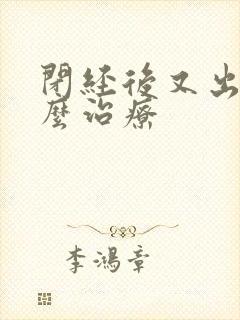 閉経後又出
麼治療
李鴻章